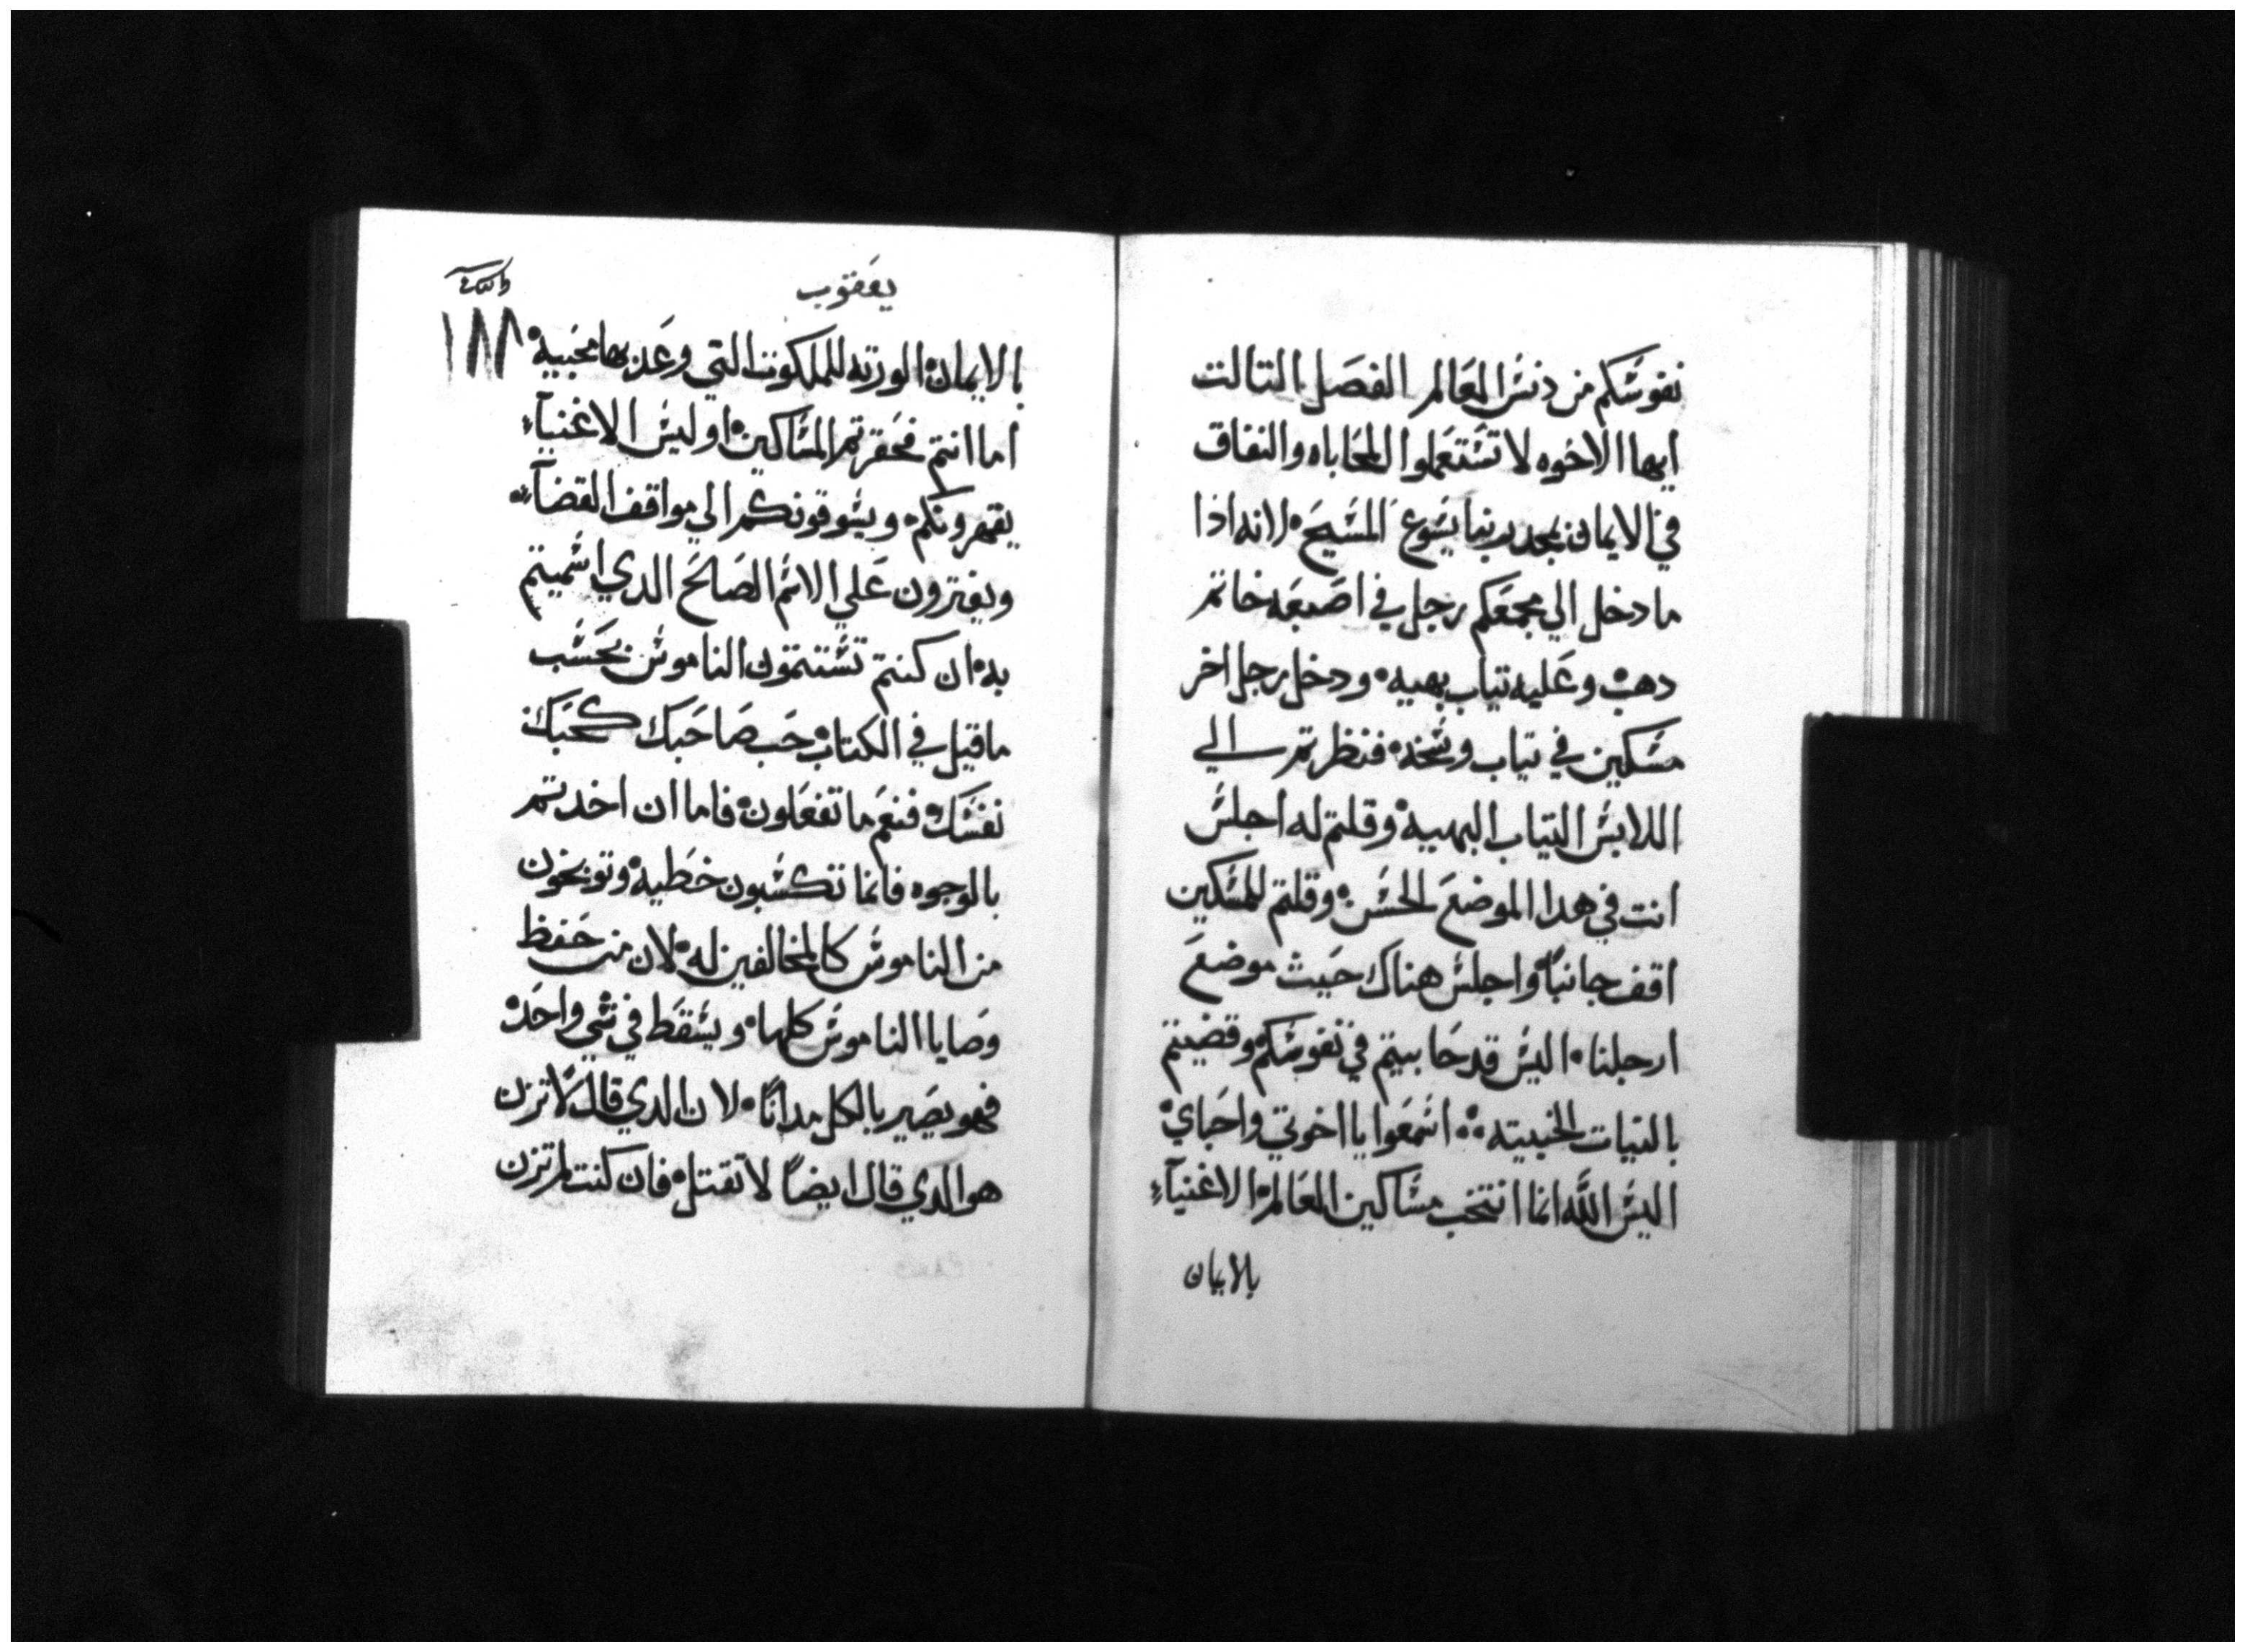 نفوسكم من دنس العالم الفصل التالت
ايها الاخوه لا تستعملوا المحاباه والنفاق
في الايمان بمجد ربنا يسوع المسيح لانه اذا
ما دخل الي مجمعكم رجل في اصبعه خاتم
دهب وعليه تياب بهيه ودخل رجل اخر
مسكين في تياب وسخه فنظرتم الي
اللابس التياب البهيه وقلتم له اجلس
انت في هدا الموضع الحسن وقلتم للمسكين
اقف جانباً واجلس هناك حيث موضع
ارجلنا اليس قد حابيتم في نفوسكم وقضيتم
بالنيات الخبيته اسمعوا يا اخوتي واحباي
اليس الله انما انتخب مساكين العالم الاغنيآء
بالايمان
يعقوب
١٨٨
بالايمان الورته للملكوت التي وعد بها محبيه
اما انتم فحقرتم المساكين او ليس الاغنيآء
يقهرونكم ويسوقونكم الي مواقف القضآء
ويفترون علي الاسم الصالح الدي اسميتم
به ان كنتم تستتمون الناموس بحسب
ما قيل في الكتاب حب صاحبك كحبك
نفسك فنعم ما تفعلون فاما ان اخدتم
بالوجوه فانما تكسبون خطيه وتوبخون
من الناموس كالمخالفين له لان من حفظ
وصايا الناموس كلها ويسقط في شي واحد
فهو يصير بالكل مداناً لان الدي قال لا تزن
هو الدي قال ايضاً لا تقتل فان كنت لم تزن